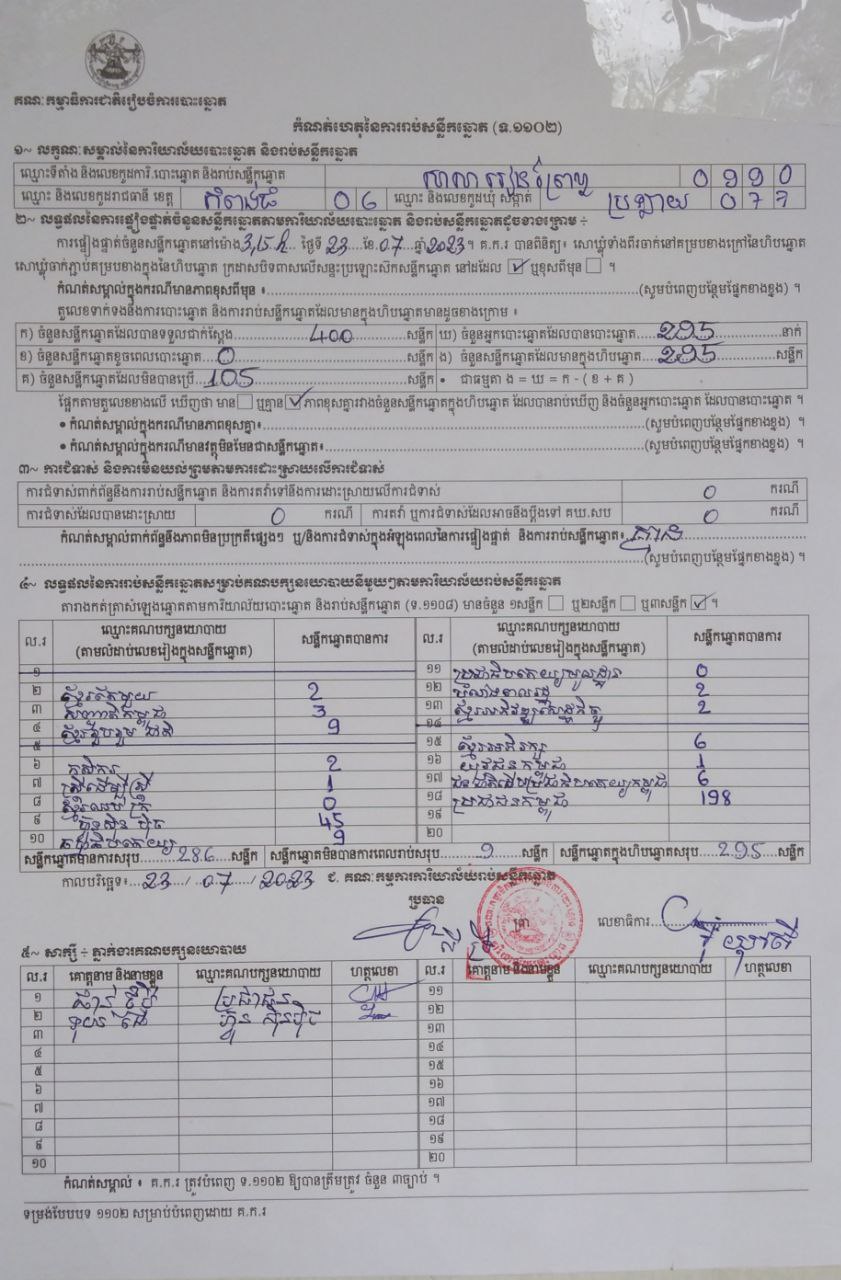 គណៈកម្មាធិការជាតិរៀបចំការបោះឆ្នោត
កំណត់ហេតុនៃការរាប់សន្លឹកឆ្នោត (ទ.១១០២)
១~ លក្ខណៈសម្គាល់នៃការិយាល័យបោះឆ្នោត និងរាប់សន្លឹកឆ្នោត
ឈ្មោះទីតាំង និងលេខកូដការិ.បោះឆ្នោត និងរាប់សន្លឹកឆ្នោត
ឈ្មោះ និងលេខកូដរាជធានី ខេត្ត កំពង់ធំ 0 6 ឈ្មោះ និងលេខកូដឃុំ សង្កាត់ ប្រឡាយ
២~ លទ្ធផលនៃការផ្ទៀងផ្ទាត់ចំនួនសន្លឹកឆ្នោតតាមការិយាល័យបោះឆ្នោត និងរាប់សន្លឹកឆ្នោតដូចខាងក្រោម ÷
ការផ្ទៀងផ្ទាត់ចំនួនសន្លឹកឆ្នោតនៅម៉ោង 3,15 ថ្ងៃទី 23 ខែ 07 ឆ្នាំ 2023 ។ គ.ក.រ បានពិនិត្យ៖ សោឃ្លុំទាំងពីរចាក់នៅគម្របខាងក្រៅនៃហិបឆ្នោត
សោឃ្លុំចាក់ភ្ជាប់គម្របខាងក្នុងនៃហិបឆ្នោត ក្រដាសបិទពាសលើសន្ទះប្រឡោះស៊កសន្លឹកឆ្នោត នៅដដែល ☑ ឬខុសពីមុន ☐ ។
កំណត់សម្គាល់ក្នុងករណីមានភាពខុសពីមុន ៖ (សូមបំពេញបន្ថែមផ្នែកខាងខ្នង) ។
តួលេខទាក់ទងនឹងការបោះឆ្នោត និងការរាប់សន្លឹកឆ្នោតដែលមានក្នុងហិបឆ្នោតមានដូចខាងក្រោម ៖
ក) ចំនួនសន្លឹកឆ្នោតដែលបានទទួលជាក់ស្តែង 400 សន្លឹក ឃ) ចំនួនអ្នកបោះឆ្នោតដែលបានបោះឆ្នោត 295 នាក់
ខ) ចំនួនសន្លឹកឆ្នោតខូចពេលបោះឆ្នោត 0 សន្លឹក ង) ចំនួនសន្លឹកឆ្នោតដែលមានក្នុងហិបឆ្នោត 295 សន្លឹក
គ) ចំនួនសន្លឹកឆ្នោតដែលមិនបានប្រើ 105 សន្លឹក • ជាធម្មតា ង = ឃ = ក - ( ខ + គ )
ផ្អែកតាមតួលេខខាងលើ ឃើញថា មាន ☐ ឬគ្មាន ☑ ភាពខុសគ្នារវាងចំនួនសន្លឹកឆ្នោតក្នុងហិបឆ្នោត ដែលបានរាប់ឃើញ និងចំនួនអ្នកបោះឆ្នោត ដែលបានបោះឆ្នោត ។
• កំណត់សម្គាល់ក្នុងករណីមានភាពខុសគ្នា៖ (សូមបំពេញបន្ថែមផ្នែកខាងខ្នង) ។
• កំណត់សម្គាល់ក្នុងករណីមានវត្ថុមិនមែនជាសន្លឹកឆ្នោត៖ (សូមបំពេញបន្ថែមផ្នែកខាងខ្នង) ។
៣~ ការជំទាស់ និងការមិនយល់ព្រមតាមការដោះស្រាយលើការជំទាស់
ការជំទាស់ពាក់ព័ន្ធនឹងការរាប់សន្លឹកឆ្នោត និងការតវ៉ាទៅនឹងការដោះស្រាយលើការជំទាស់ 0 ករណី
ការជំទាស់ដែលបានដោះស្រាយ 0 ករណី ការតវ៉ា ឬការជំទាស់ដែលអាចនឹងប្តឹងទៅ គឃ.សប 0 ករណី
កំណត់សម្គាល់ពាក់ព័ន្ធនឹងភាពមិនប្រក្រតីផ្សេងៗ ឬ/និងការជំទាស់ក្នុងអំឡុងពេលនៃការផ្ទៀងផ្ទាត់ និងការរាប់សន្លឹកឆ្នោត៖ គ្មាន
(សូមបំពេញបន្ថែមផ្នែកខាងខ្នង) ។
៤~ លទ្ធផលនៃការរាប់សន្លឹកឆ្នោតសម្រាប់គណបក្សនយោបាយនីមួយៗតាមការិយាល័យរាប់សន្លឹកឆ្នោត
តារាងកត់ត្រាសំឡេងឆ្នោតតាមការិយាល័យបោះឆ្នោត និងរាប់សន្លឹកឆ្នោត (ទ.១១០៨) មានចំនួន ១សន្លឹក ☐ ឬ២សន្លឹក ☐ ឬ៣សន្លឹក ☑ ។
ល.រ ឈ្មោះគណបក្សនយោបាយ (តាមលំដាប់លេខរៀងក្នុងសន្លឹកឆ្នោត) សន្លឹកឆ្នោតបានការ ល.រ ឈ្មោះគណបក្សនយោបាយ (តាមលំដាប់លេខរៀងក្នុងសន្លឹកឆ្នោត) សន្លឹកឆ្នោតបានការ
១ ១១ ប្រជាធិបតេយ្យមូលដ្ឋាន 0
២ ខ្មែរតែមួយ 2 ១២ កម្លាំងប្រជាធិបតេយ្យ 2
៣ សញ្ជាតិកម្ពុជា 3 ១៣ ខ្មែរអភិវឌ្ឍន៍សេដ្ឋកិច្ច 2
៤ ខ្មែររួបរួមជាតិ 9 ១៤
៥ ១៥ ខ្មែរអភិរក្ស 6
៦ កសិករ 2 ១៦ យុវជនកម្ពុជា 1
៧ ស្ត្រីដើម្បីស្ត្រី 1 ១៧ ជនជាតិដើមប្រជាធិបតេយ្យកម្ពុជា 6
៨ ខ្មែរឈប់ក្រ 0 ១៨ ប្រជាជនកម្ពុជា 198
៩ ហ៊្វុនស៊ិនប៉ិច 45 ១៩
១០ 9 ២០
សន្លឹកឆ្នោតមានការសរុប 286 សន្លឹក សន្លឹកឆ្នោតមិនបានការពេលរាប់សរុប 9 សន្លឹក សន្លឹកឆ្នោតក្នុងហិបឆ្នោតសរុប 295 សន្លឹក
កាលបរិច្ឆេទ៖ 23 / 07 / 2023 ជ. គណៈកម្មការការិយាល័យរាប់សន្លឹកឆ្នោត
ប្រធាន
លេខាធិការ
៥~ សាក្សី ÷ ភ្នាក់ងារគណបក្សនយោបាយ
ល.រ គោត្តនាម និងនាមខ្លួន ឈ្មោះគណបក្សនយោបាយ ហត្ថលេខា ល.រ គោត្តនាម និងនាមខ្លួន ឈ្មោះគណបក្សនយោបាយ ហត្ថលេខា
១ ប្រជាជន ១១
២ ហ៊្វុនស៊ិនប៉ិច ១២
៣ ១៣
៤ ១៤
៥ ១៥
៦ ១៦
៧ ១៧
៨ ១៨
៩ ១៩
១០ ២០
កំណត់សម្គាល់ ៖ គ.ក.រ ត្រូវបំពេញ ទ.១១០២ ឱ្យបានត្រឹមត្រូវ ចំនួន ៣ច្បាប់ ។
ទម្រង់បែបបទ ១១០២ សម្រាប់បំពេញដោយ គ.ក.រ